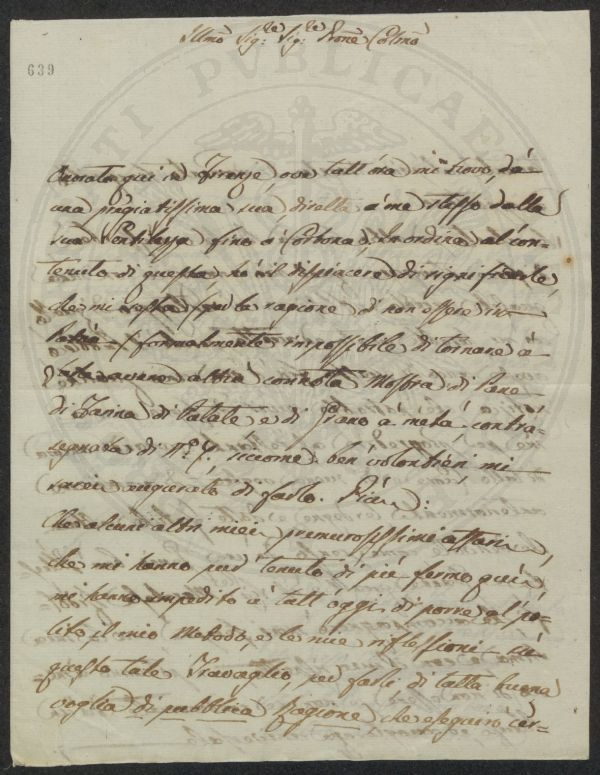 Illmo Sig.re Sig.re Prone Colmo
639
Onorato quì in Firenze ove tutt'ora mi trovo, da
una pregiatissima sua diretta a me stesso dalla
sua Gentilezza fino a Cortona; In ordine al con-
tenuto di questa, hò il dispiacere di significarle,
che mi resta per la ragione di non essere in
formalmente impossibile di tornare à
avere altra Mostra di Pane
di Farina di Patate e di Grano a metà, contra-
segnata di N.o siccome ben volontieri mi
sarei augurato di farlo. Più:
Che alcuni altri miei premurosissimi affari,
che mi hanno però tenuto di piè fermo quì,
mi hanno impedito a tutt'oggi di porre al po-
lito il mio Metodo, e le mie riflessioni sù
questo tale Travaglio, per farli di tutta buona
voglia di pubblica Ragione che eseguirò cer-